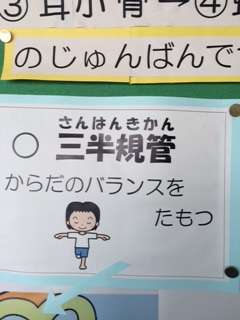 ③耳小骨→④
のじゅんばんで
さんはんきかん
○ 三半規管
からだのバランスを
たもつ